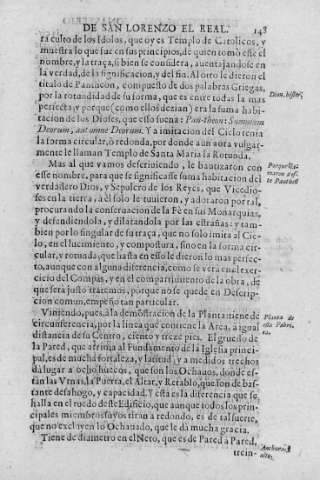 DE SAN LORENZO EL REAL. 148
ra culto de los Idolos, que oy es Templo de Catolicos, y
muestra lo que fue en sus principios, de quien tomò este el
nombre, y la traça, si bien se considera, aventajandose en
la verdad, de la significacion, y del fin. Al otro le dieron el
titulo de Panteon, compuesto de dos palabras Griegas,
por la rotundidad de su forma, que es entre todas la mas
perfecta; y porque (como ellos dezian) era la suma habi-
tacion de los Dioses, que esso suena: Pan-theon: Summum
Deorum, aut omne Deorum. Y a imitacion del Cielo tenia
la forma circular, ò redonda, por donde aun aora vulgar-
mente le llaman Templo de Santa Maria la Rotunda.
Dion. histor.
Mas al que vamos descriviendo, le bautizaron con
esse nombre, para que se significasse suma habitacion del
verdadero Dios, y Sepulcro de los Reyes, que Vicedio-
ses en la tierra, à èl solo le tuvieron, y adoraron por tal,
procurando la conservacion de la Fè en sus Monarquias,
y defendiendola, y dilatandola por las estrañas: y tam-
bien por lo singular de su traça, que no solo imita al Cie-
lo, en el lucimiento, y compostura, sino en la forma circu-
lar, y rotunda, que hasta en esso le dieron lo mas perfec-
to, aunque con alguna diferencia, como se verà en el exer-
cicio del Compas, y en el compartimento de la obra, de
que serà justo tratemos, porque no se quede en Descrip-
cion comun, empeño tan particular.
Viniendo, pues, a la demostracion de la Planta tiene de
circunferencia, por la linea que contiene la Area, a igual
distancia de su Centro, ciento y treze pies. El grueso de
la Pared, que afirma al Fundamento de la Iglesia princi-
pal, es de mucha fortaleza, y latitud; y a medidos trechos
dà lugar a ocho huecos, que son los Ochavos, donde es-
tàn las Vrnas, la Puerta, el Altar, y Retablo, que son de bas-
tante desahogo, y capacidad. Y esta es la diferencia que se
halla en el ruedo deste Edificio, que aunque todos los prin-
cipales miembros suyos tiran a redondo, es de tal suerte,
que no excluyen lo Ochavado, que le dà mucha gracia.
Planta de esta Fabri-
ca.
Tiene de diametro en el Neto, que es de Pared à Pared,
trein-